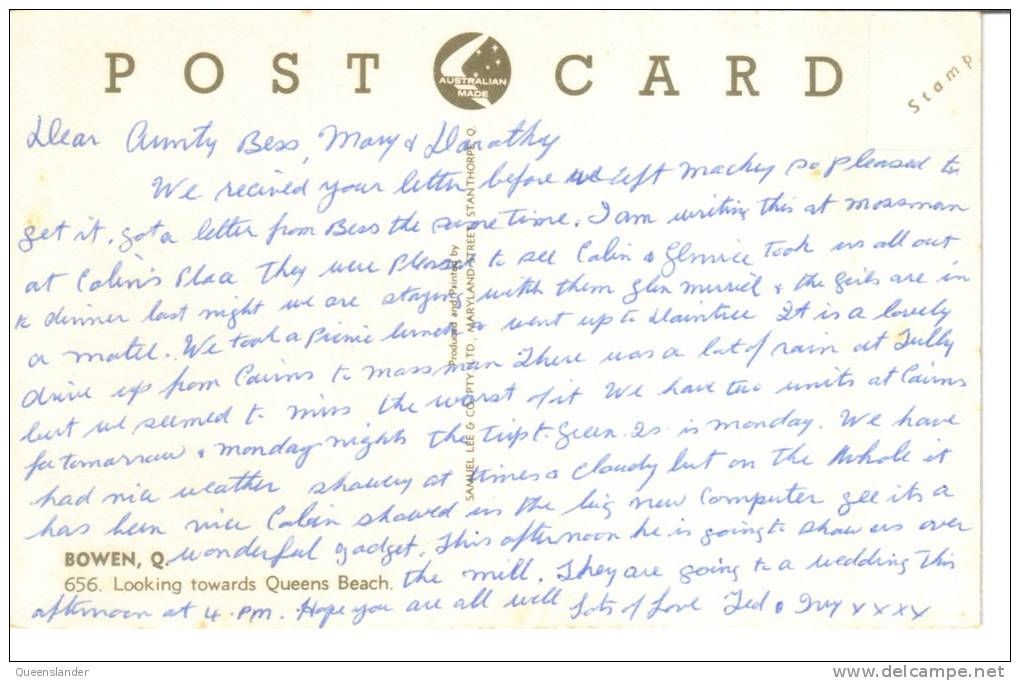 POST CARD
AUSTRALIAN
MADE
Stamp
Dear Aunty Bess, Mary & Dorothy
We recived your letter before we left Mackey so pleased to
get it, got a letter from Bess the same time. I am writing this at Mossman
at Colin's Place They were pleased to see Colin & Glenice Took us all out
to dinner last night we are staying with them Glen Murriel & the Girls are in
a motel. We took a Picnic lunch & went up to Daintree It is a lovely
drive up from Cairns to Mossman There was a lot of rain at Tully
but we seemed to miss the worst of it We have two units at Cairns
for tomorrow & monday nights the trip to Green Is. is monday. We have
had nice weather showery at times & cloudy but on the Whole it
has been nice Colin showed us the big new Computer gee its a
wonderful gadget. This afternoon he is going to show us over
the mill. They are going to a wedding this
afternoon at 4.PM. Hope you are all well Lots of Love Ted & Ivy xxxx
BOWEN, Q.
656. Looking towards Queens Beach.
Produced and Printed by
SAMUEL LEE & CO. PTY. LTD., MARYLAND STREET, STANTHORPE, Q.
Queenslander
www.delcampe.net